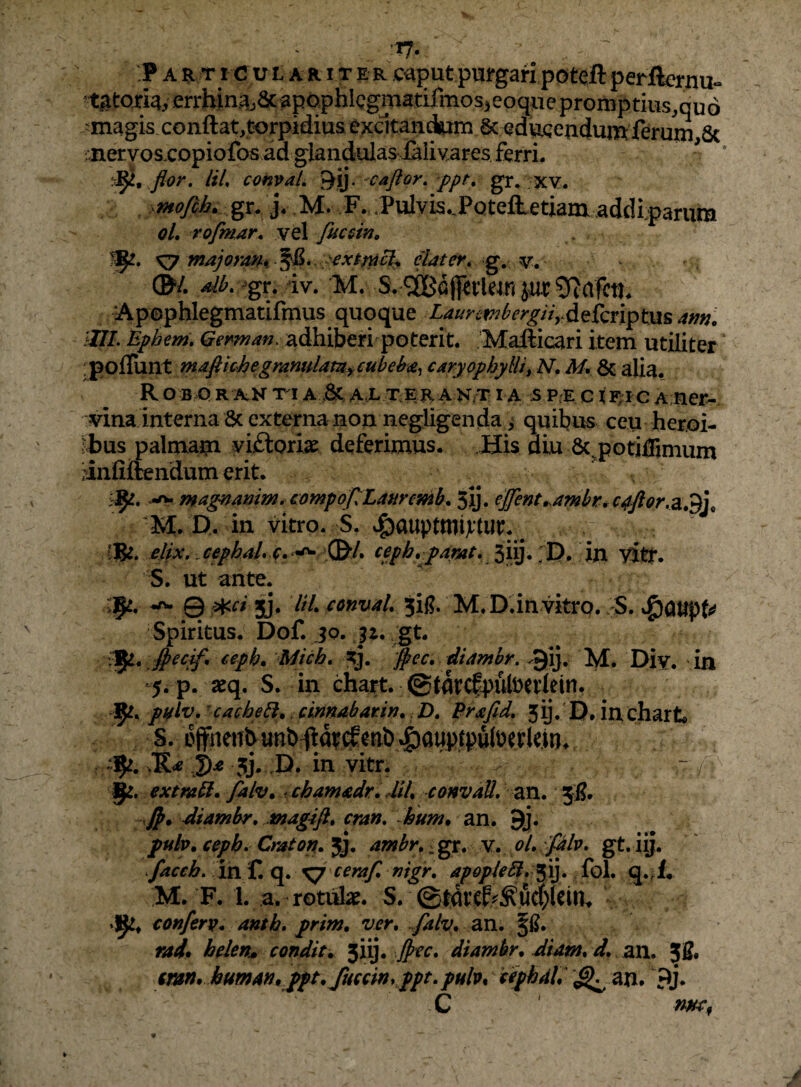 17.
PARTICULARITER caput purgari potest persternu-
tatoria, errhina, & apophlegmatismos, eoque promptius, quo
magis constat, torpidius excitandum & educendum ferum, &
nervos copiosos ad glandulas salivares ferri.
℞. flor. lil. conval. ℈ij. castor. ppt. gr. xv.
mosch. gr. j. M. F. Pulvis. Potest etiam addi parum
ol. rosmar. vel succin.
℞. 🜄 majoran. ℥ß. extract. elater. g. v.
alb. gr. iv. M. S. Wässerlein zur Nasen.
Apophlegmatismus quoque Laurembergii, descriptus ann.
III. Ephem. German. adhiberi poterit. Masticari item utiliter
possunt mastiche granulata, cubebæ, caryophylli, N. M. & alia.
ROBORANTIA & ALTERANTIA SPECIFICA ner-
vina interna & externa non negligenda, quibus ceu heroi-
bus palmam victoriæ deferimus. His diu & potissimum
insistendum erit.
℞. magnanim. compos. Lauremb. ʒij. essent. ambr. castor. a. ℈j.
M. D. in vitro. S. Hauptmixtur.
℞. elix. cephal. c. ceph. parat. ʒiij. D. in vitr.
S. ut ante.
℞. ʒj. lil. conval. ʒiß. M. D. in vitro. S. Haupt-
Spiritus. Dos. 30. 32. gt.
℞. specif. ceph. Mich. ʒj. spec. diambr. ℈ij. M. Div. in
5. p. æq. S. in chart. Stärckpülverlein.
℞. pulv. cachect. cinnabarin. D. Præsid. ʒij. D. in chart.
S. öffnend und stärckend Hauptpülverlein.
℞. ʒj. D. in vitr.
℞. extract. salv. chamædr. lil. convall. an. ʒß.
sp. diambr. magist. cran. hum. an. ℈j.
pulv. ceph. Craton. ʒj. ambr. gr. v. ol. salv. gt. iij.
sacch. in s. q. 🜄 ceras. nigr. apoplect. ℥ij. sol. q. s.
M. F. l. a. rotulæ. S. Stärck-Küchlein.
℞. conserv. anth. prim. ver. salv. an. ℥ß.
rad. helen. condit. ʒiij. spec. diambr. diam. d. an. ʒß.
cran. human. ppt. succin. ppt. pulv. cephal. an. ℈j.
C nuc,